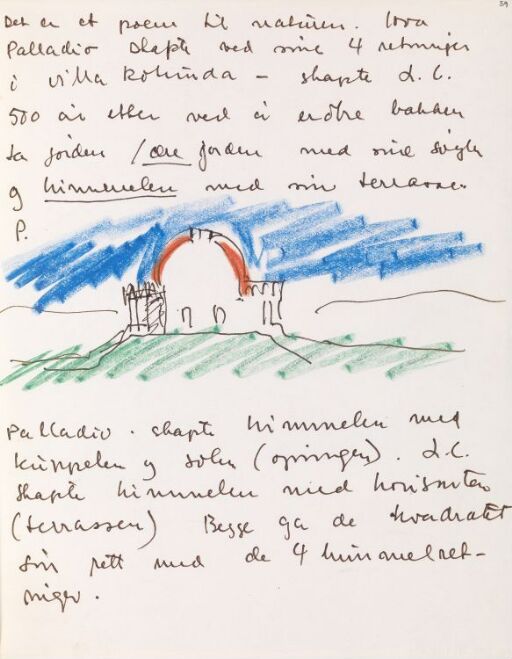 39
Det er et poem til naturen. Hva
Palladio skapte ved sine 4 retninger
i villa Rotonda – skapte L.C.
500 år etter ved å erobre bakken
ta jorden / ære jorden med sine søyler
og himmelen med sin terrasse.
P.
Palladio . skapte himmelen med
kuppelen og solen (åpningen). L.C.
skapte himmelen med horisonten
(terrassen) Begge ga de kvadratet
sin rett med de 4 himmelret-
ninger.